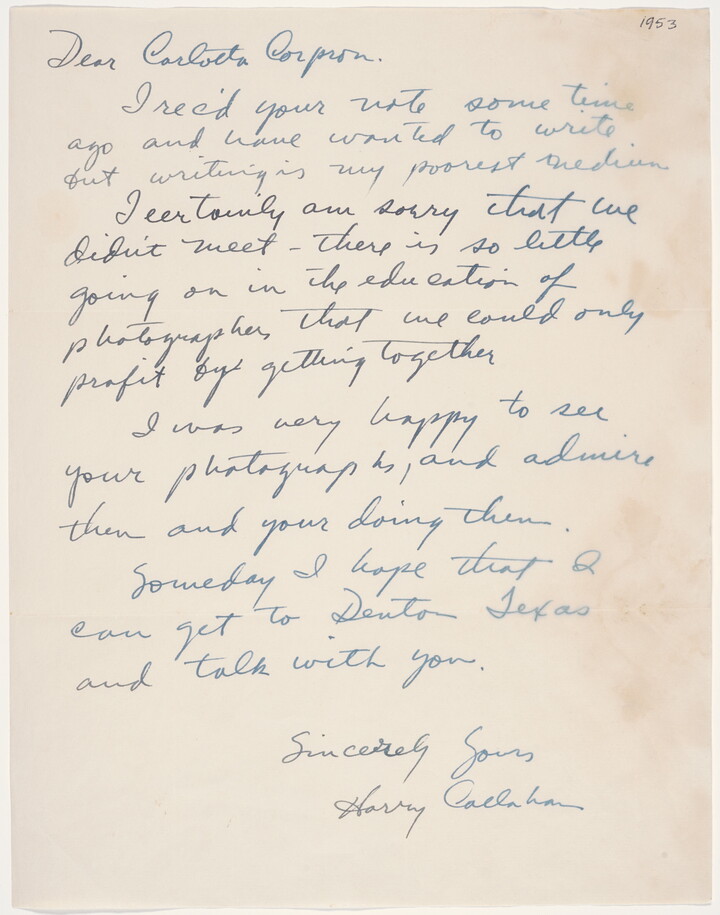 1953
Dear Carlotta Corpron.
I rec'd your note some time
ago and have wanted to write
but writing is my poorest medium
I certainly am sorry that we
didn't meet – there is so little
going on in the education of
photographers that we could only
profit by getting together
I was very happy to see
your photographs, and admire
them and your doing them.
Someday I hope that I
can get to Denton Texas
and talk with you.
Sincerely Yours
Harry Callahan